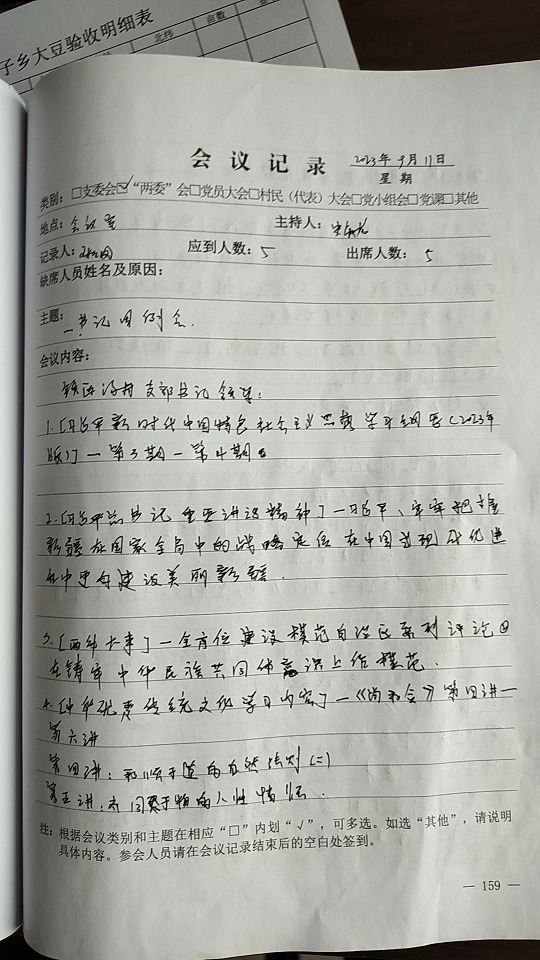 子乡大豆验收明细表
北纬
亩数
会议记录
2023年9月11日
星期
类别：□支委会☑“两委”会□党员大会□村民（代表）大会□党小组会□党课□其他
地点：会议室
主持人：
记录人：
应到人数：5
出席人数：5
缺席人员姓名及原因：
主题：
一.书记周例会.
会议内容：
支部书记领学：
1.［习近平新时代中国特色社会主义思想学习纲要（2023年
版）］一第3期－第4期
2.［习近平总书记重要讲话精神］一习近平、牢牢把握
新疆在国家全局中的战略定位 在中国式现代化进
程中更好建设美丽新疆.
3.［一全方位建设模范自治区系列评论④
在铸牢中华民族共同体意识上作模范.
4.［中华优秀传统文化学习内容］一《尚和合》第四讲一
第六讲
第四讲：和顺于道的自然法则（二）
第五讲：的人性情怀.
注：根据会议类别和主题在相应“□”内划“√”，可多选。如选“其他”，请说明
具体内容。参会人员请在会议记录结束后的空白处签到。
— 159 —